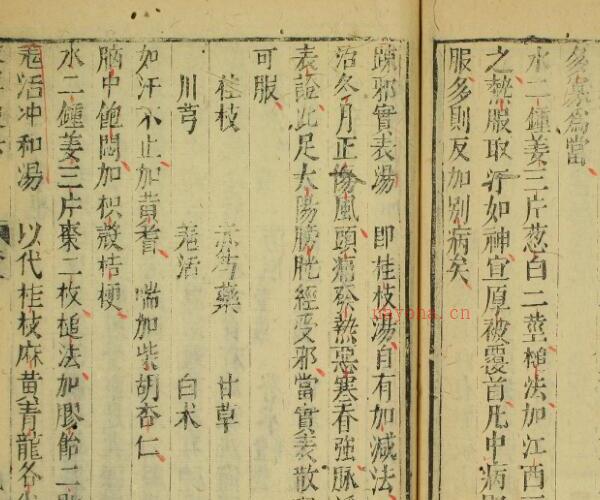 多寡為當
水二鍾姜三片葱白二莖槌法加江西
之熱服取汗如神宜厚被覆首凡中病
服多則反加別病矣
疎邪實表湯　即桂枝湯自有加減法
治冬月正傷風頭痛發熱惡寒脊強脉
表證此足太陽膀胱經受邪當實表散
可服
桂枝　赤芍藥　甘草
川芎　羌活　白术
如汗不止加黃耆　喘加柴胡杏仁
腦中飽悶加枳殼桔梗
水二鍾姜三片棗二枚槌法加膠飴二
羌活冲和湯　以代桂枝麻黃青龍各
nayona.cn